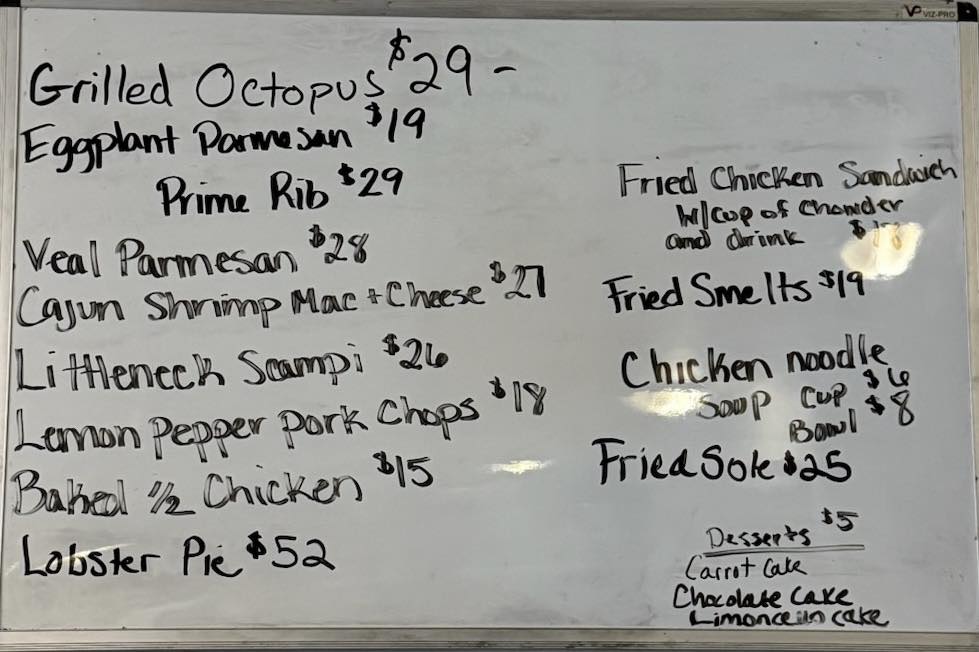 VIZ-PRO
Grilled Octopus $29 -
Eggplant Parmesan $19
Prime Rib $29
Veal Parmesan $28
Cajun Shrimp Mac + Cheese $27
Littleneck Scampi $26
Lemon Pepper Pork Chops $18
Baked 1/2 Chicken $15
Lobster Pie $52
Fried Chicken Sandwich
W/cup of Chowder
and drink
Fried Smelts $19
Chicken noodle
Soup Cup $6
Bowl $8
Fried Sole $25
Desserts $5
Carrot Cake
Chocolate Cake
Limoncello cake